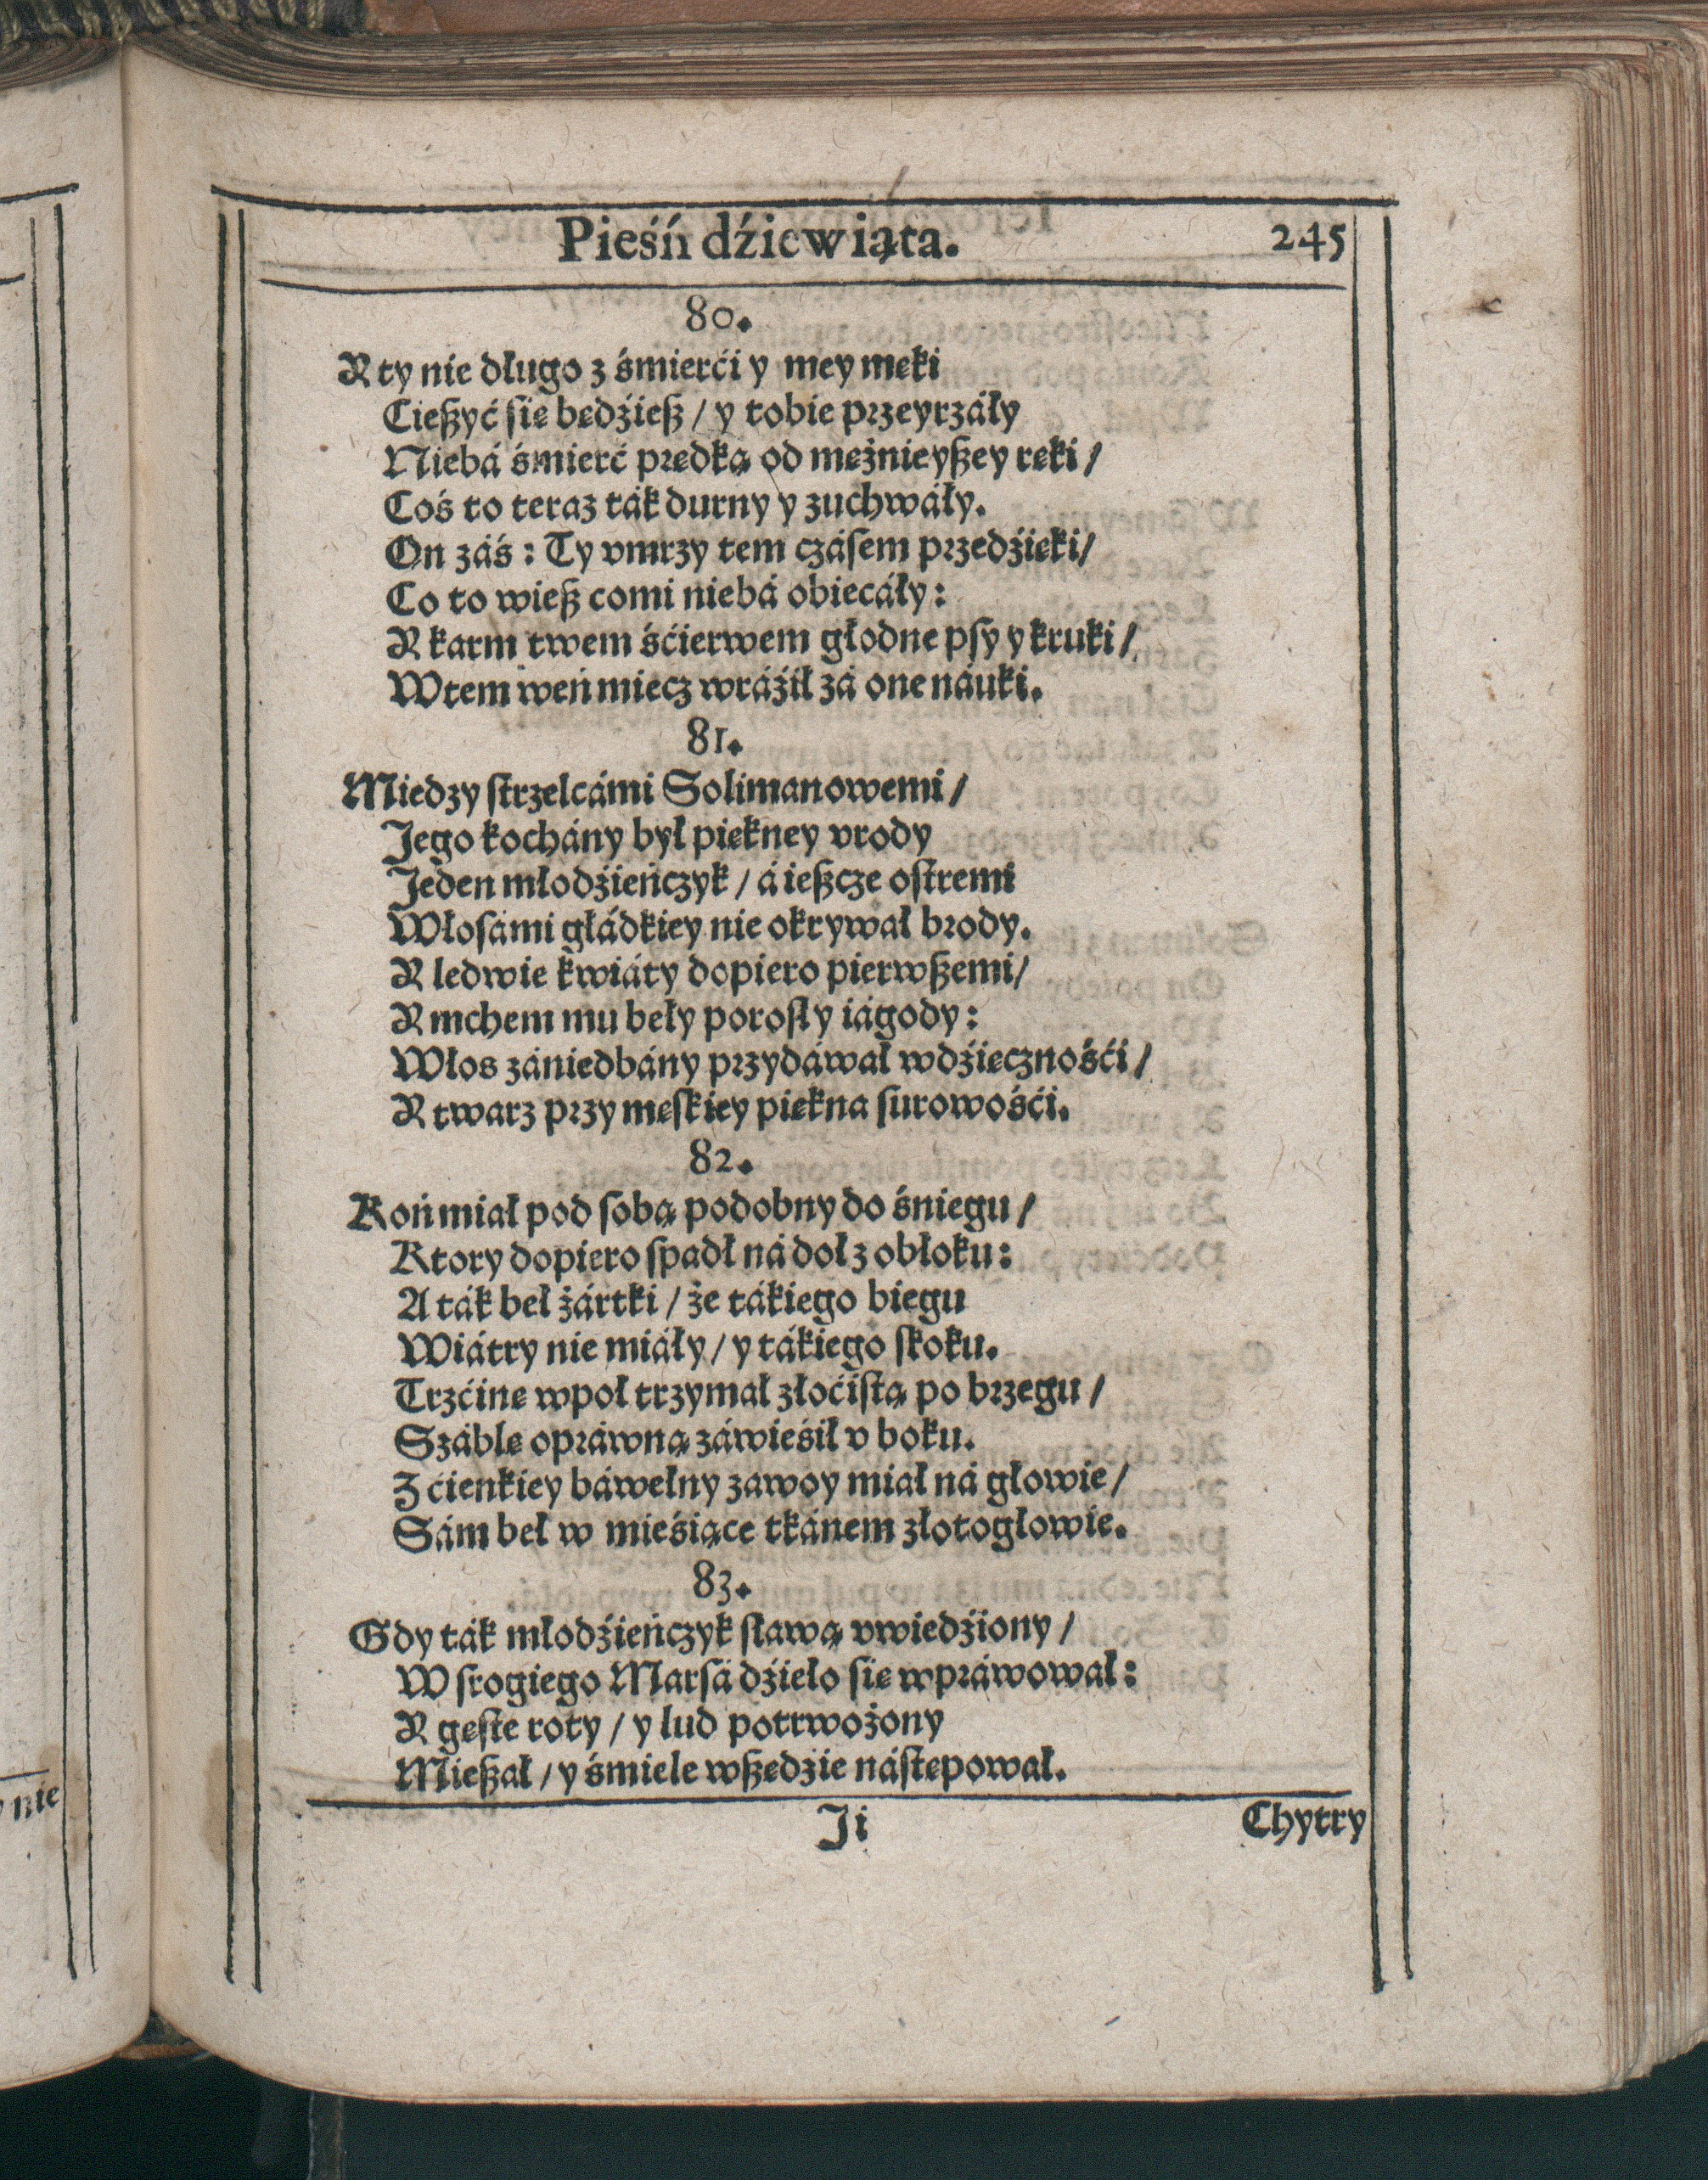 Pieśń dźiewiąta. 245
80.
A ty nie długo z śmierći y mey męki
Cießyć się będźieß / y tobie przeyrzáły
Niebá śmierć prędką od mężnieyßey ręki /
Coś to teraz ták durny y zuchwáły.
On záś : Ty vmrzy tem czásem przedźięki /
Co to wieß comi niebá obiecáły :
A karm twem śćierwem głodne psy y kruki /
Wtem weń miecz wráźił zá one náuki.
81.
Miedzy strzelcámi Solimanowemi /
Jego kochány był piękney vrody
Jeden młodźieńczyk / á ießcze ostremi
Włosámi głádkiey nie okrywał brody.
A ledwie kwiáty dopiero pierwßemi /
A mchem mu beły porosły iágody :
Włos zániedbány przydáwał wdźięcznośći /
A twarz przy męskiey piękna surowośći.
82.
Koń miał pod sobą podobny do śniegu /
Ktory dopiero spadł ná doł z obłoku :
A ták beł żártki / że tákiego biegu
Wiátry nie miáły / y tákiego skoku.
Trzćinę wpoł trzymał złoćistą po brzegu /
Száblę opráwną záwieśił v boku.
Z ćienkiey báwełny zawoy miał ná głowie /
Sám beł w mieśiące tkánem złotogłowie.
83.
Gdy ták młodźieńczyk sławą vwiedźiony /
W srogiego Marsá dźieło się wpráwował :
A gęste roty / y lud potrwożony
Mießał / y śmiele wßędzie nástępował.
Ji Chytry
nie